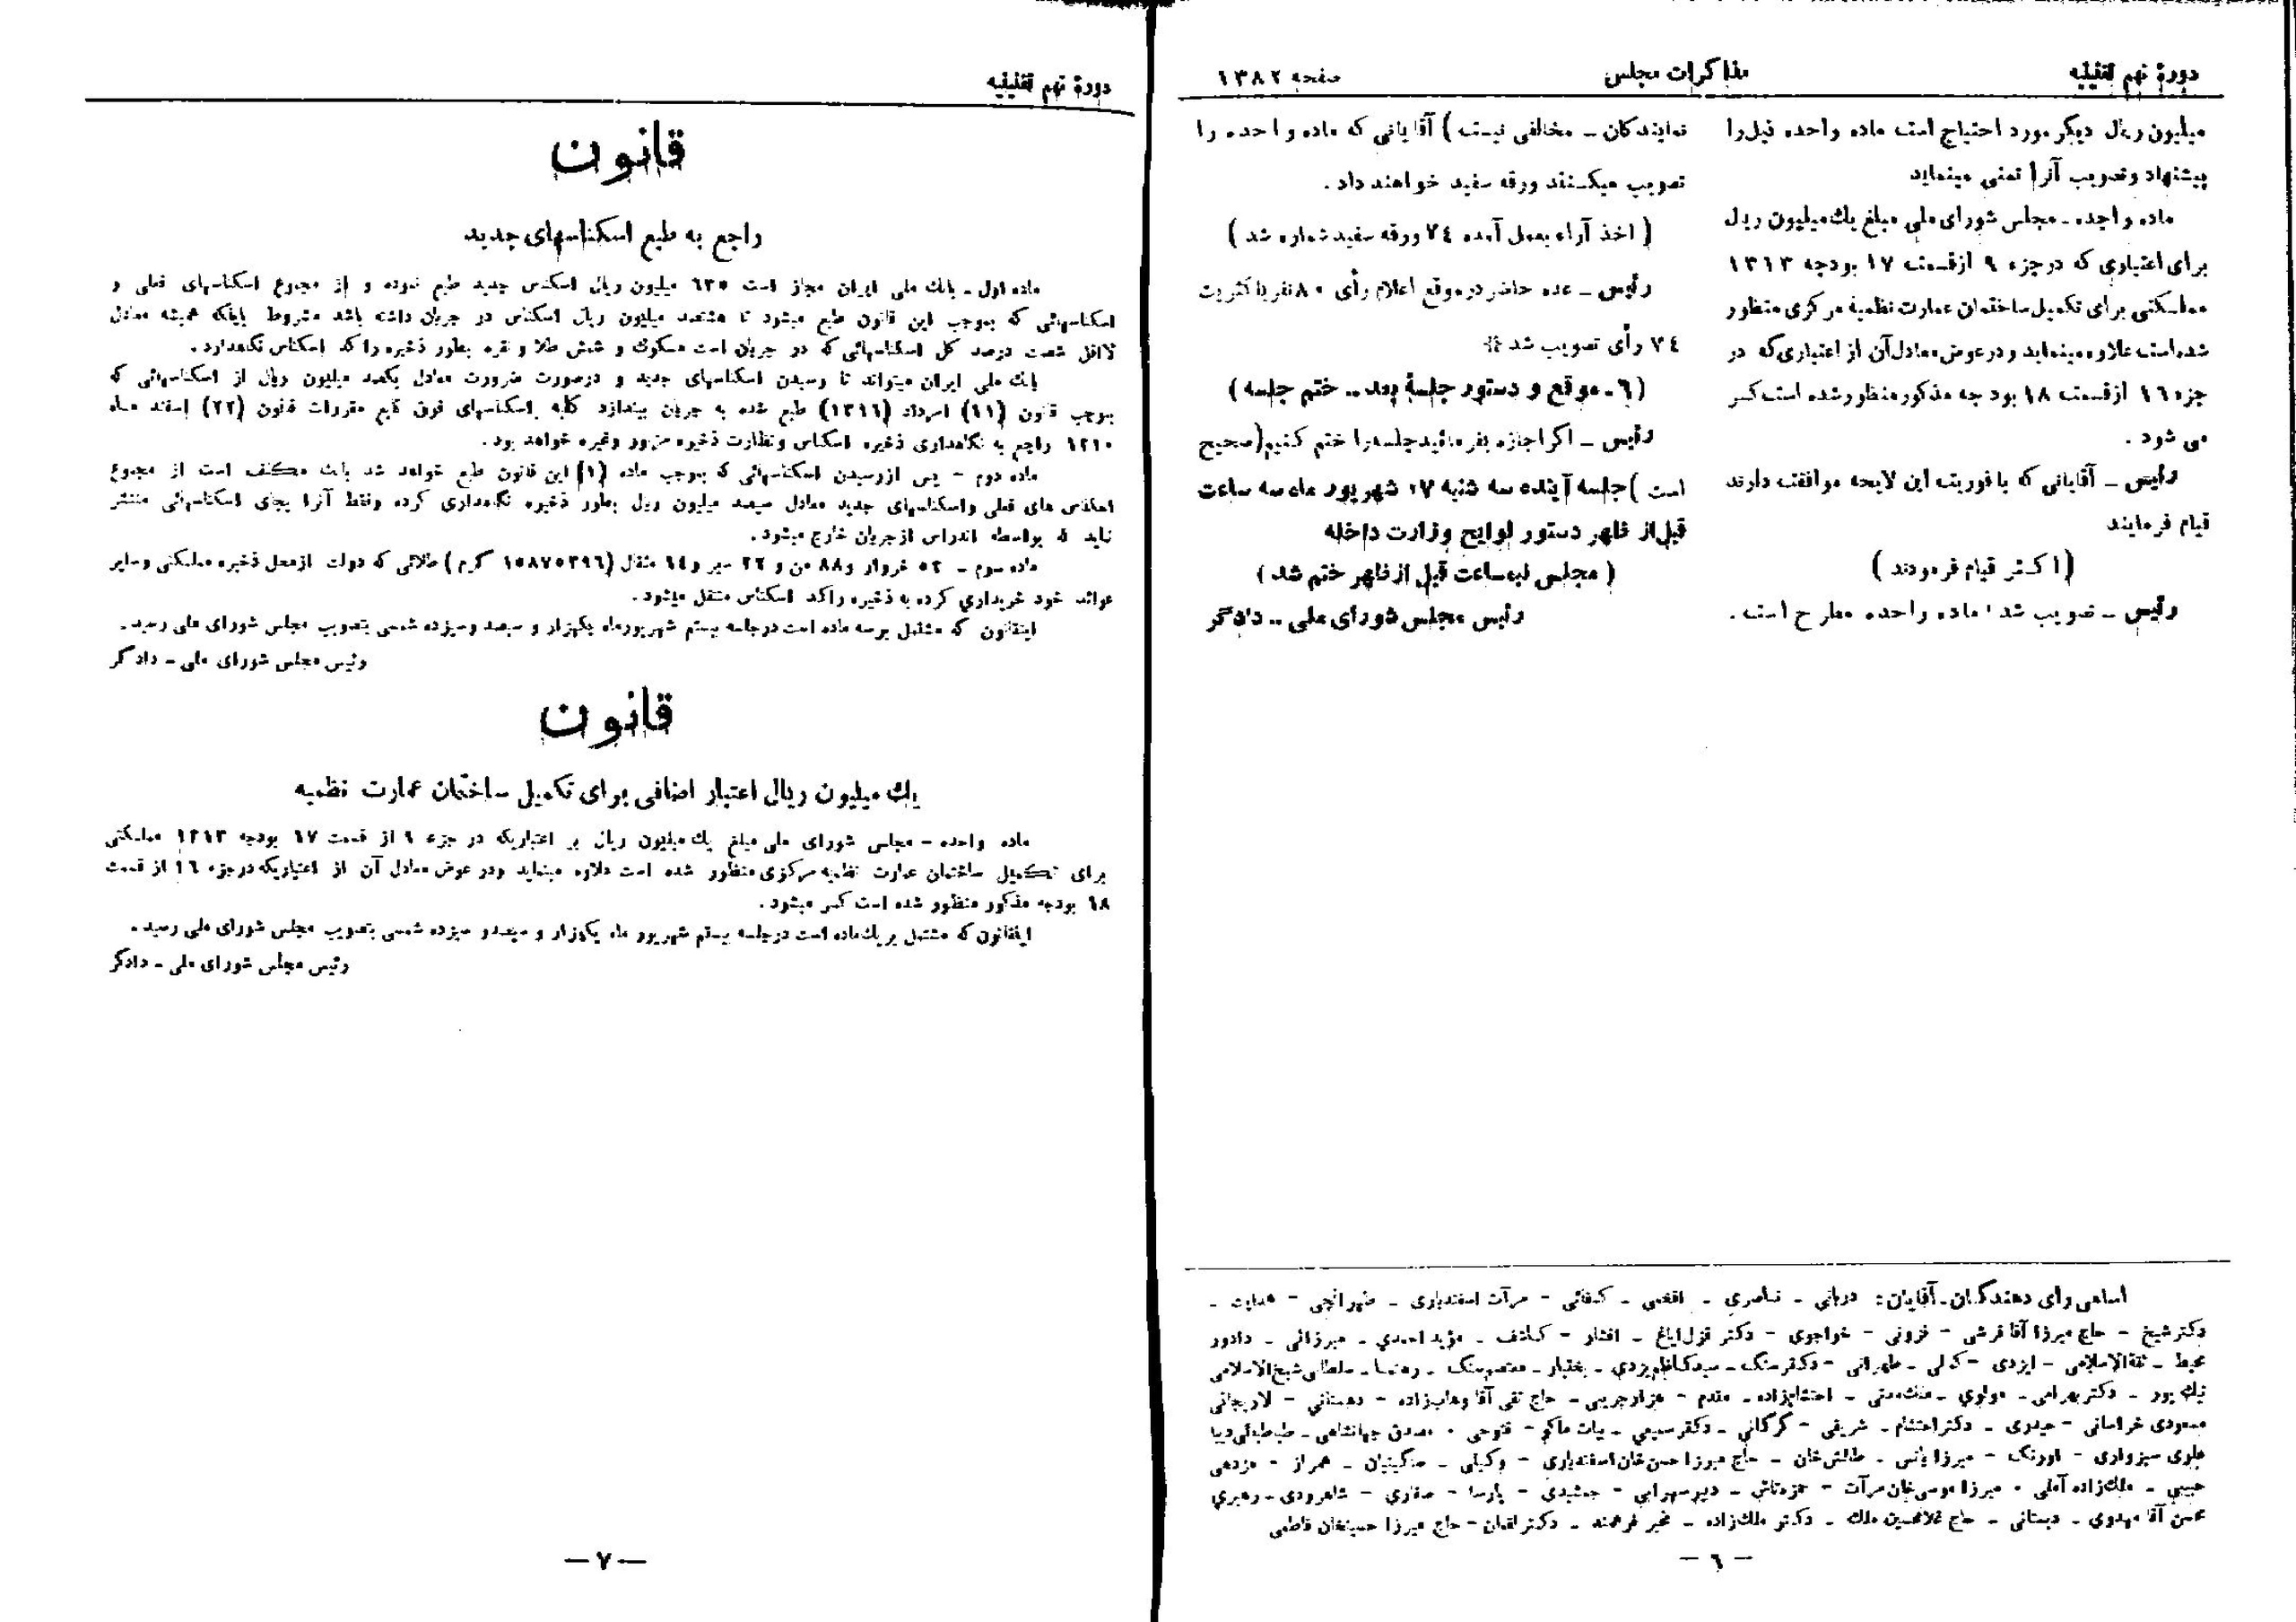 دورهٔ نهم تقنینیه
مذاکرات مجلس
صفحه ۱۳۸۲
میلیون ریال دیگر مورد احتیاج است ماده واحده ذیل را
پیشنهاد و تصویب آنرا تمنی مینماید
ماده واحده ـ مجلس شورای ملی مبلغ یك میلیون ریال
برای اعتباری که در جزء ۹ از قسمت ۱۷ بودجه ۱۳۱۳
مملکتی برای تکمیل ساختمان عمارت نظمیهٔ مرکزی منظور
شده است علاوه مینماید و در عوض معادل آن از اعتباری که در
جزء ۱۶ از قسمت ۱۸ بودجه مذکور منظور شده است کسر
می شود .
رئیس ـ آقایانی که با فوریت این لایحه موافقت دارند
قیام فرمایند
(اکثر قیام فرمودند)
رئیس ـ تصویب شد ، ماده واحده مطرح است .
نمایندگان ـ مخالفی نیست) آقایانی که ماده واحده را
تصویب میکنند ورقه سفید خواهند داد .
(اخذ آراء بعمل آمده ۷٤ ورقه سفید شماره شد)
رئیس ـ عده حاضر در موقع اعلام رأی ۸۰ نفر با کثریت
۷٤ رأی تصویب شد *
(٦ ـ موقع و دستور جلسهٔ بعد ـ ختم جلسه)
رئیس ـ اگر اجازه بفرمائید جلسه را ختم کنیم (صحیح
است) جلسه آینده سه شنبه ۲۷ شهریور ماه سه ساعت
قبل از ظهر دستور لوایح وزارت داخله
(مجلس نیم ساعت قبل از ظهر ختم شد)
رئیس مجلس شورای ملی ـ دادگر
اسامی رأی دهندگان ـ آقایان : دربانی ـ ناصری ـ افخمی ـ کفائی ـ مرآت اسفندیاری ـ طهرانچی ـ هدایت ـ
دکتر شیخ ـ حاج میرزا آقا فرشی ـ قزونی ـ خواجوی ـ دکتر قزل ایاغ ـ افشار ـ کاشف ـ مؤید احمدی ـ میرزائی ـ دادور
محیط ـ ثقة الاسلامی ـ ایزدی ـ کمالی ـ طهرانی ـ دکتر سنگ ـ سید کاظم یزدی ـ بختیار ـ معتصم سنگ ـ رهنما ـ سلطانی شیخ الاسلامی
نیك پور ـ دکتر بهرامی ـ مولوی ـ ملك مدنی ـ احتشام زاده ـ مقدم ـ هزار جریبی ـ حاج تقی آقا وهاب زاده ـ دهستانی ـ لاریجانی
مسعودی خراسانی ـ حیدری ـ دکتر احتشام ـ شریفی ـ گرگانی ـ دکتر سمیعی ـ بیات ماکو ـ فتوحی ـ مصدق جهانشاهی ـ طباطبائی دیبا
علوی سبزواری ـ اورنگ ـ میرزا یانس ـ طالش خان ـ حاج میرزا حسن خان اسفندیاری ـ وکیلی ـ ملکیان ـ همراز ـ مژدهی
حبیبی ـ ملك زاده آملی ـ میرزا موسی خان مرآت ـ حمزه تاش ـ دبیر سهرابی ـ جمشیدی ـ پارسا ـ صفاری ـ شاهرودی ـ رهبری
محسن آقا مهدوی ـ دبستانی ـ حاج غلامحسین ملك ـ دکتر ملك زاده ـ مخبر فرهمند ـ دکتر لقمان ـ حاج میرزا حسینخان فاطمی
— ٦ —
دورهٔ نهم تقنینیه
قانون
راجع به طبع اسکناسهای جدید
ماده اول ـ بانك ملی ایران مجاز است ٦۳۵ میلیون ریال اسکناس جدید طبع نموده و از مجموع اسکناسهای فعلی و
اسکناسهائی که بموجب این قانون طبع میشود تا هشتصد میلیون ریال اسکناس در جریان داشته باشد مشروط باینکه همیشه معادل
لااقل شصت درصد کل اسکناسهائی که در جریان است مسکوك و شمش طلا و نقره بطور ذخیره راکد اسکناس نگاهدارد .
بانك ملی ایران میتواند تا رسیدن اسکناسهای جدید و در صورت ضرورت معادل یکصد میلیون ریال از اسکناسهائی که
بموجب قانون (۱۱) امرداد (۱۳۱۱) طبع شده به جریان بیندازد کلیه اسکناسهای فوق تابع مقررات قانون (۲۲) اسفند ماه
۱۳۱۰ راجع به نگاهداری ذخیره اسکناس و نظارت ذخیره مزبور و غیره خواهد بود .
ماده دوم ـ پس از رسیدن اسکناسهائی که بموجب ماده (۱) این قانون طبع خواهد شد بانك مکلف است از مجموع
اسکناس های فعلی و اسکناسهای جدید معادل سیصد میلیون ریال بطور ذخیره نگاهداری کرده و فقط آنرا بجای اسکناسهائی منتشر
نماید که بواسطه اندراس از جریان خارج میشود .
ماده سوم ـ ۵۲ خروار و ۸۸ من و ۲۲ سیر و ۱٤ مثقال (۱۵۸۷۵۳۹٦ گرم) طلائی که دولت از محل ذخیره مملکتی و سایر
عواید خود خریداری کرده به ذخیره راکد اسکناس منتقل میشود .
اینقانون که مشتمل بر سه ماده است در جلسه بیستم شهریور ماه یکهزار و سیصد و سیزده شمسی بتصویب مجلس شورای ملی رسید .
رئیس مجلس شورای ملی ـ دادگر
قانون
یك میلیون ریال اعتبار اضافی برای تکمیل ساختمان عمارت نظمیه
ماده واحده ـ مجلس شورای ملی مبلغ یك میلیون ریال بر اعتباریکه در جزء ۹ از قسمت ۱۷ بودجه ۱۳۱۳ مملکتی
برای تکمیل ساختمان عمارت نظمیه مرکزی منظور شده است علاوه مینماید و در عوض معادل آن از اعتباریکه در جزء ۱٦ از قسمت
۱۸ بودجه مذکور منظور شده است کسر میشود .
اینقانون که مشتمل بر یك ماده است در جلسه بیستم شهریور ماه یکهزار و سیصد و سیزده شمسی بتصویب مجلس شورای ملی رسید .
رئیس مجلس شورای ملی ـ دادگر
— ۷ —